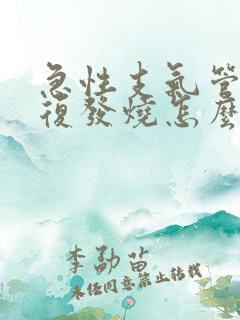 急性支气管
復發燒怎麼
李勁苗
未任同意禁止转载